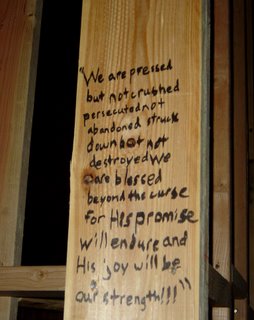 "We are pressed
but not crushed
persecuted not
abandoned struck
down but not
destroyed We
are blessed
beyond the curse
for His promise
will endure and
His joy will be
our strength!!!"